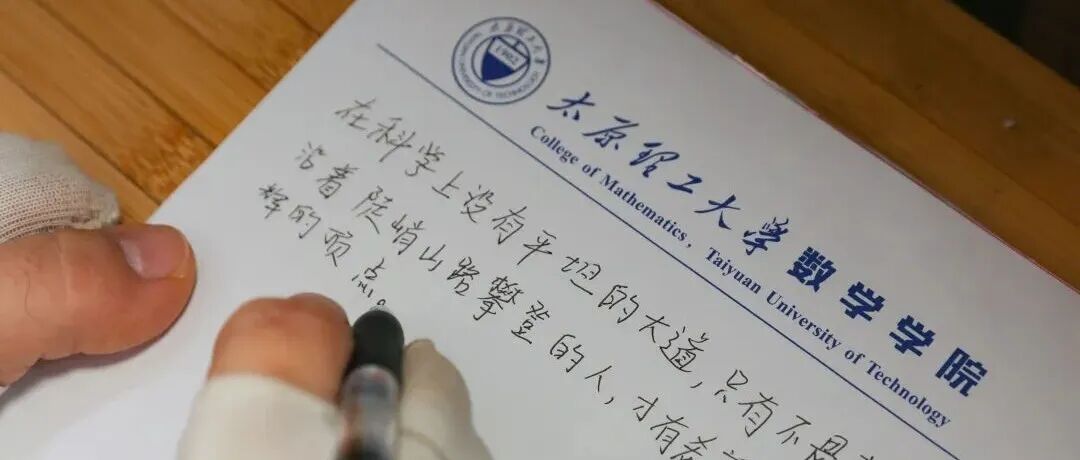 太原理工大学
1902
UNIVERSITY OF TECHNOLOGY
太原理工大学 数学学院
College of Mathematics, Taiyuan University of Technology
在科学上没有平坦的大道,只有不
沿着陡峭山路攀登的人,才有希
辉的顶点。